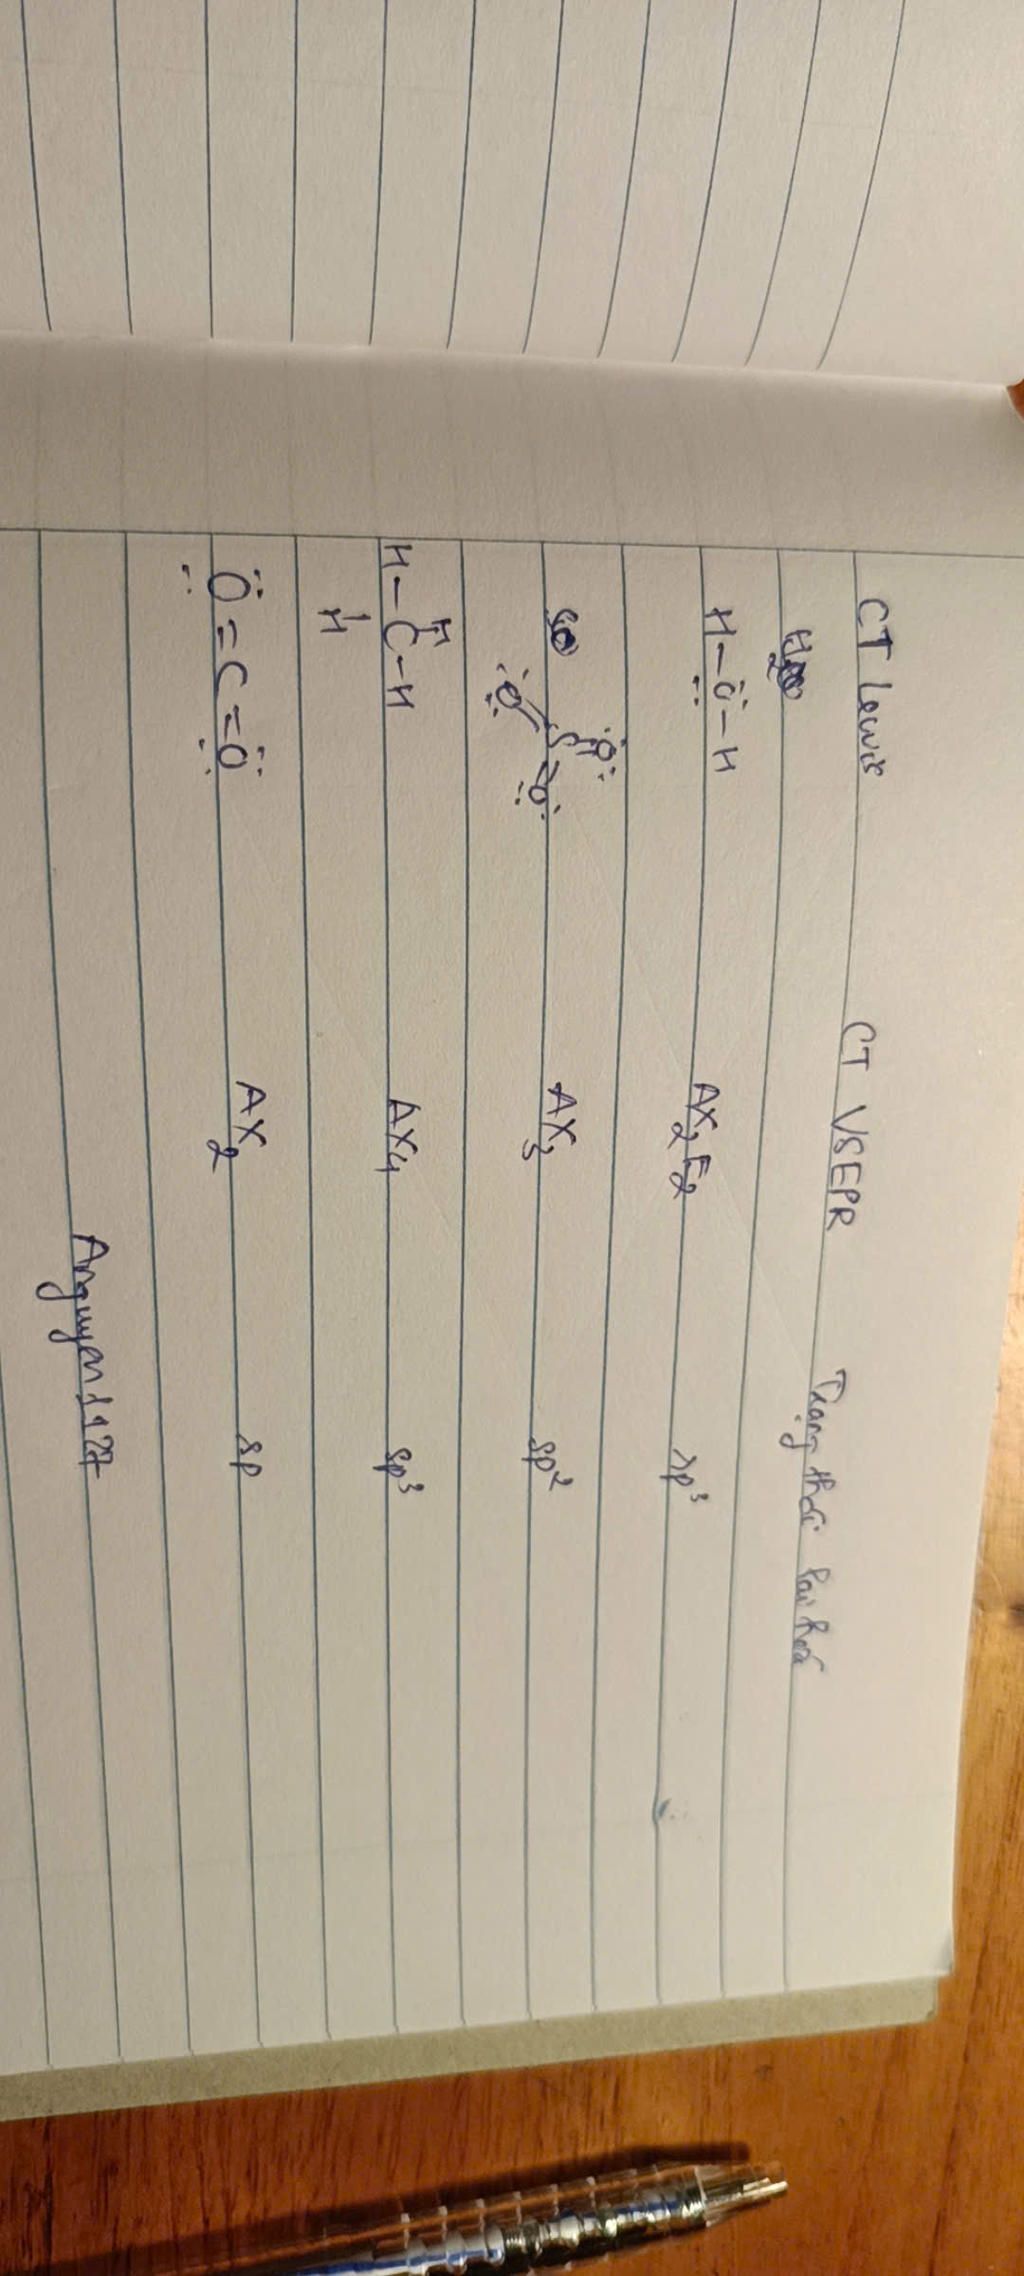 CT Lewis CT VSEPR Trạng thái lai hoá
H2
H–Ö–H AX2E2 sp³
S
O=S=O
O AX3 sp²
H
H–C–H AX4 sp³
H
O=C=O AX2 sp
Anguyen1127